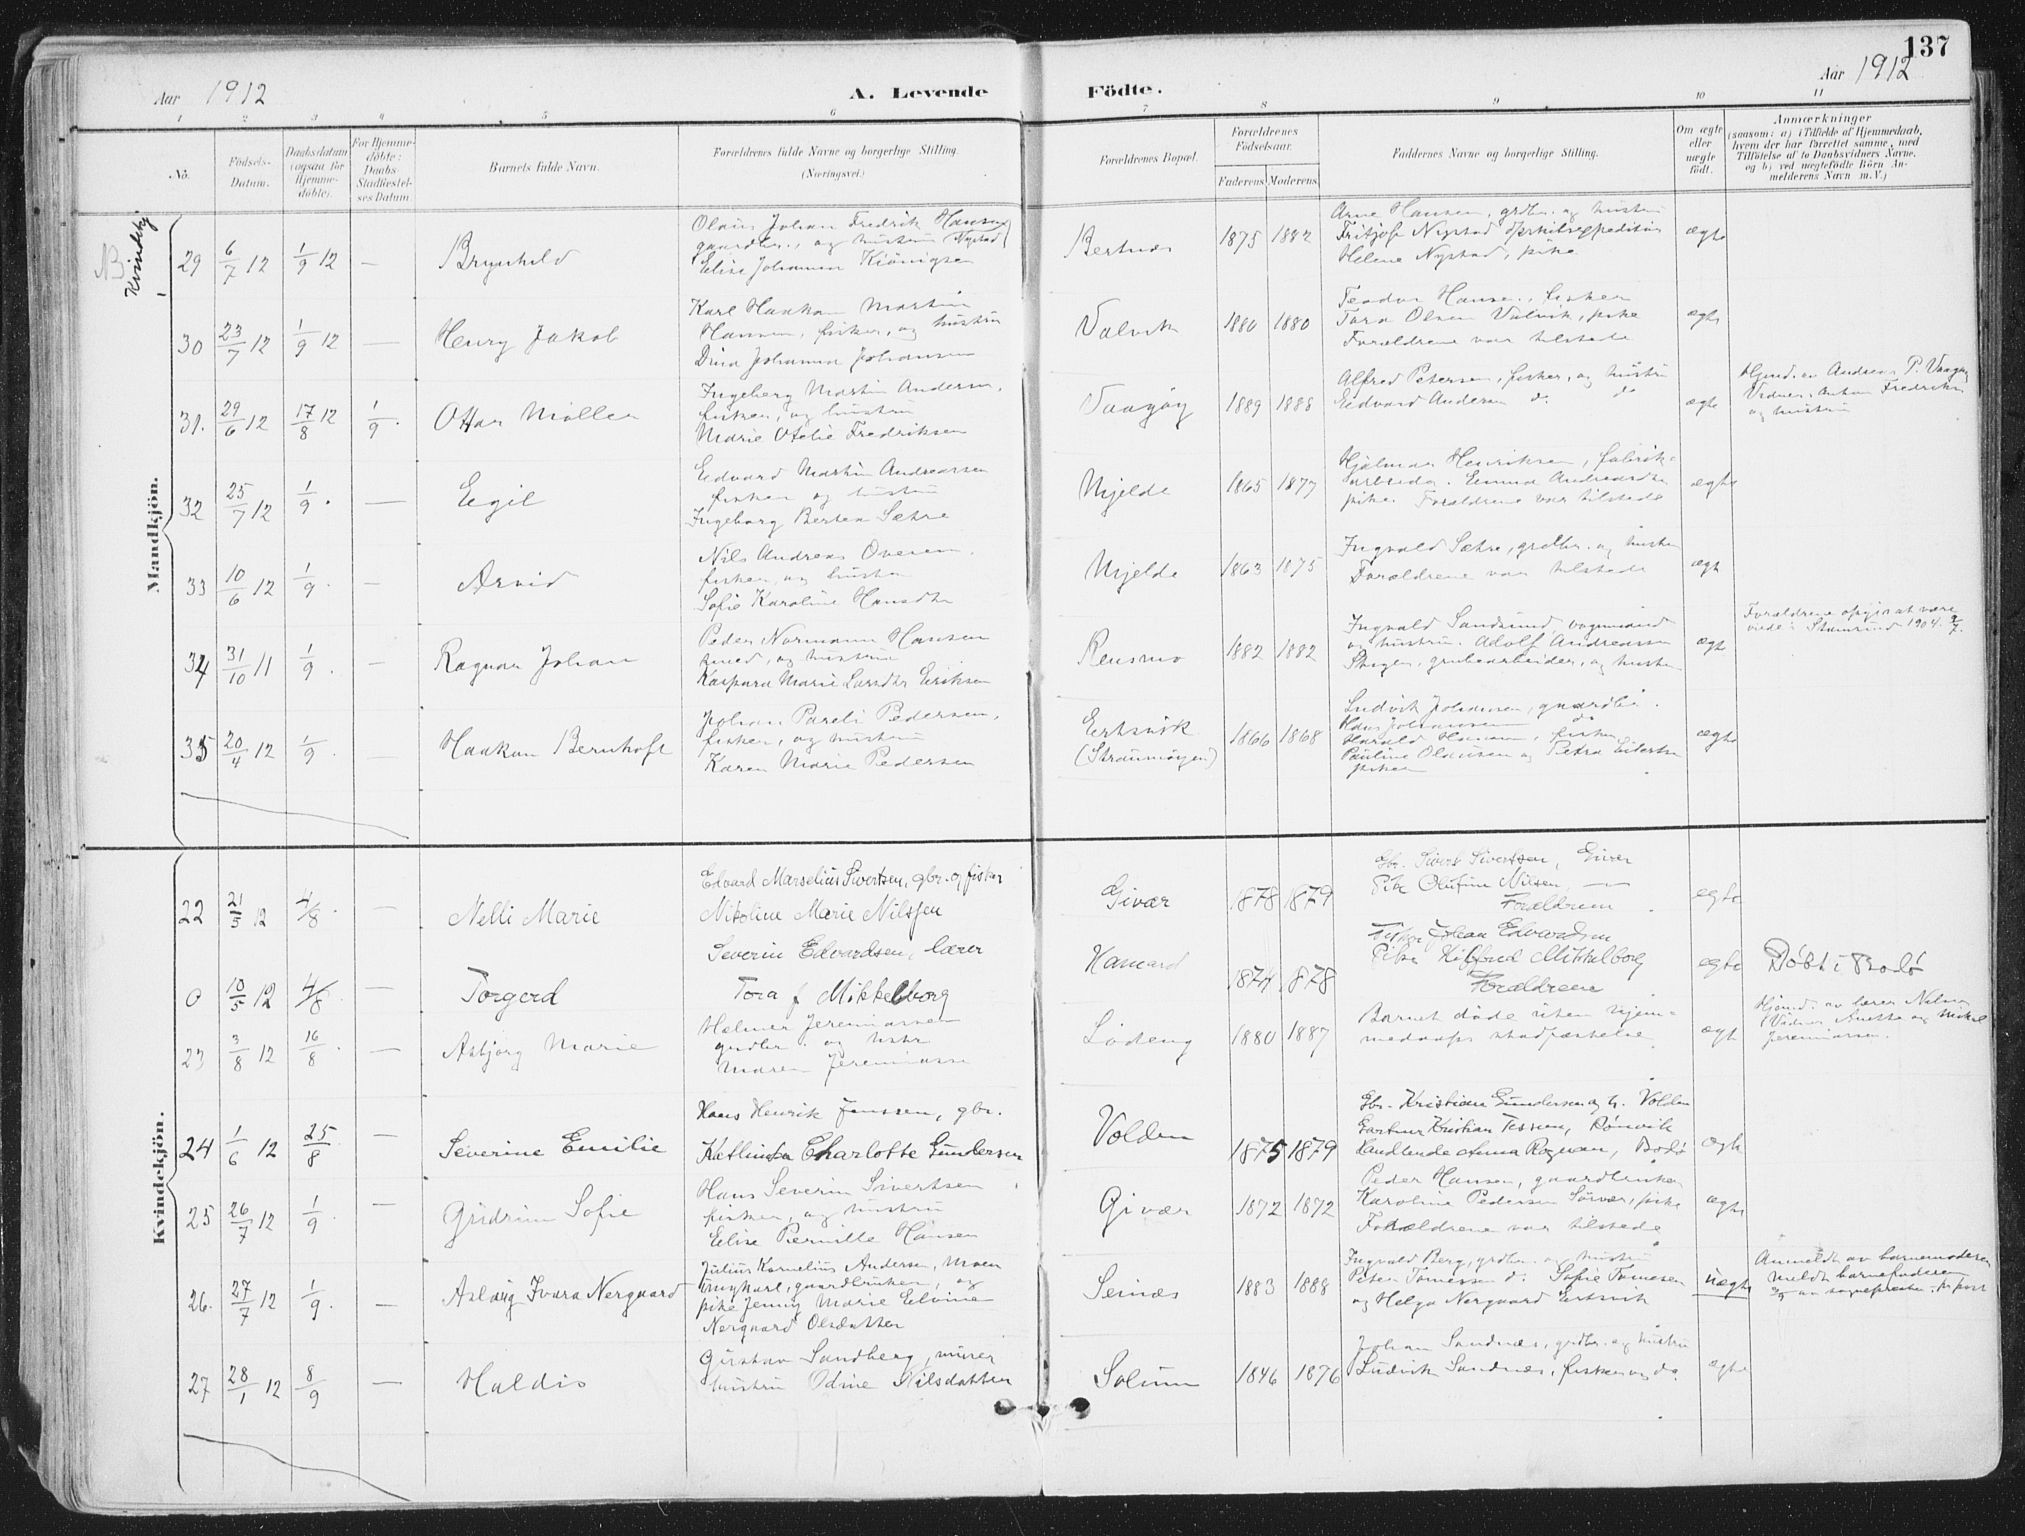 137
Aar 1912
A. Levende
Födte.
Aar 1912
1 2 3 4 5 6 7 8 9 10 11
No.
Födsels-Datum.
Daabsdatum (ogsaa for Hjemmedöbte).
For Hjemmedöbte: Daabs Stadfæstelses Datum.
Barnets fulde Navn.
Forældrenes fulde Navne og borgerlige Stilling. (Næringsvei.)
Forældrenes Bopæl.
Forældrenes Födselsaar.
Faderens. Moderens.
Faddernes Navne og borgerlige Stilling.
Om ægte eller uægte födt.
Anmærkninger
(saasom: a) i Tilfælde af Hjemmedaab, hvem der har forrettet samme, med Tilföielse af to Daabsvidners Navne, og b) ved uægtefödte Börn Anmelderens Navn m. V.)
Mandkjön.
NB Kvindekj
29 6/7 12 1/9 12 — Brynhild
Olaus Johan Fredrik Hansen
gaardbr., og hustru Nystad
Elise Johanna Kiönigsen
Bertnes 1875 1882
Arne Hansen, grdbr. og hustru
Fritjof Nystad
Helene Nystad, pike
ægte
30 23/7 12 1/9 12 — Henry Jakob
Karl Haakon Martin
Hansen, fisker, og hustru
Dina Johanna Johansen
Valvik 1880 1880
Teodor Hansen, fisker
Tora Olsen Valvik, pike
Forældrene var tilstede
ægte
31. 29/6 12 17/8 12 1/9. Ottar Møller
Ingeberg Martin Andersen,
fisker, og hustru
Marie Otelie Fredriksen
Vaagøy 1889 1888
Alfred Petersen, fisker, og hustru
Edvard Andersen do do
ægte
Hjmd. av Andreas P. Vaagøy
Vidner: Anton Fredriksen
og hustru
32 25/7 12 1/9. — Egil
Edvard Martin Andreassen
fisker og hustru
Ingeborg Berten Sætre
Mjelde 1865 1877
Hjalmar Henriksen, fabrik-
arbeider. Emma Andreasdtr
pike. Forældrene var tilstede
ægte
33 10/6 12 1/9. — Arvid
Nils Andreas Overen.
fisker, og hustru
Sofie Karoline Hansdtr
Mjelde 1863 1875
Ingvald Sætre, grdbr. og hustru
Forældrene var tilstede
ægte
34 31/10 11 1/9. — Ragnar Johan
Peder Normann Hansen
smed, og hustru
Kaspara Marie Larsdtr Eriksen
Rensmo 1882 1882
Ingvald Sandsund, vognmand
og hustru. Adolf Andreassen
Skogen, grubearbeider, og hustru
ægte
Forældrene opgir at være
viede i Stamsund 1904.
35 20/4 12 1/9. — Haakon Bernhoft
Johan Pareli Pedersen,
fisker, og hustru
Karen Marie Pedersen
Ertsvik
(Straumöyen) 1866 1868
Ludvik Johansen, gaardbr.
Hans Johansen do
Harald Hansen, fisker
Pauline Olausen og Petra Eilertsen
piker
ægte
Kvindekjön.
22 21/5 12 4/8. — Nelli Marie
Edvard Marselius Sivertsen, gbr. og fisker
Nikoline Marie Nilssen
Givær 1878 1879
Gbr. Sivert Sivertsen, Givær
Pike Olufine Nilsen, —
Forældrene
egte
0 10/5 12 4/8. — Torgerd
Severin Edvardsen, lærer
Tora f. Mikkelborg
Hamard 1874 1878
Fisker Johan Edvardsen
Pike Mikkelborg
Forældrene
egte
Døbt i Bodø
23 3/8 12 16/8 — Asbjørg Marie
Helmer Jeremiassen
grdbr. og hstr
Maren Jeremiassen
Löding 1880 1887
Barnet døde uten hjem-
medaaps stadfæstelse.
ægt
Hjmd. av lærer Nilsen
(Vidner Anette og Mikal
Jeremiassen.
24 1/6 12 25/8. — Severine Emilie
Hans Henrik Jenssen, gbr.
Charlotte Gundersen
Volden 1875 1879
Gbr. Kristian Gundersen og h. Volden
Gartner Kristian Jenssen, Rønvik
Handlende Anna Rognan, Bodø
ægte
25 26/7 12 1/9. — Gudrun Sofie
Hans Severin Sivertsen
fisker, og hustru
Elise Pernille Hansen
Givær 1872 1872
Peder Hansen, gaardbruker
Karoline Pedersen Sörvær, pike
Forældrene var tilstede
ægte
26. 27/7 12 1/9. — Aslaug Ivara Nergaard
Julius Kornelius Andersen, Moen
ungkarl, gaardbruker, og
pike Jenny Marie Elvine
Nergaard Olsdatter
Seines 1883 1888
Ingvald Berg, grdbr. og hustru
Peter Tomessen do. Sofie Tomesen
og Helga Nergaard Ertsvik
uægte
Anmeldt av barnemoderen
Meldt barnefaderen
3/9 av sogneprest pr post
27 28/1 12 8/9 — Haldis
Gustav Sandberg, murer
hustru Odine Nilsdatter
Solum 1846 1876
Johan Sandnæs, grdbr. og hustru
Ludvik Sandnæs, fisker og do.
ægte